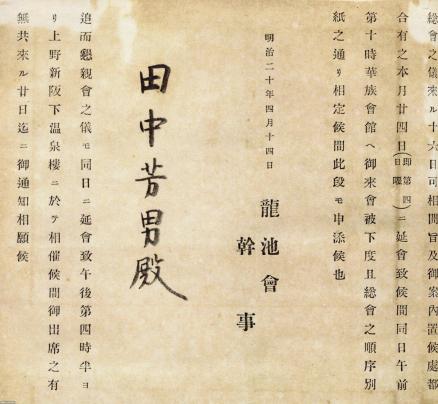 總會之儀來ル十六日可相開旨及御案內置候處都
合有之本月廿四日(即第四日曜)ニ延會致候間同日午前
第十時華族會館ヘ御來會被下度且総會之順序別
紙之通リ相定候間此段モ申添候也
明治二十年四月十四日
龍池會
幹事
田中芳男殿
追而懇親會之儀モ同日ニ延會致午後第四時半ヨ
リ上野新阪下温泉樓ニ於テ相催候間御出席之有
無共來ル廿日迄ニ御通知相願候